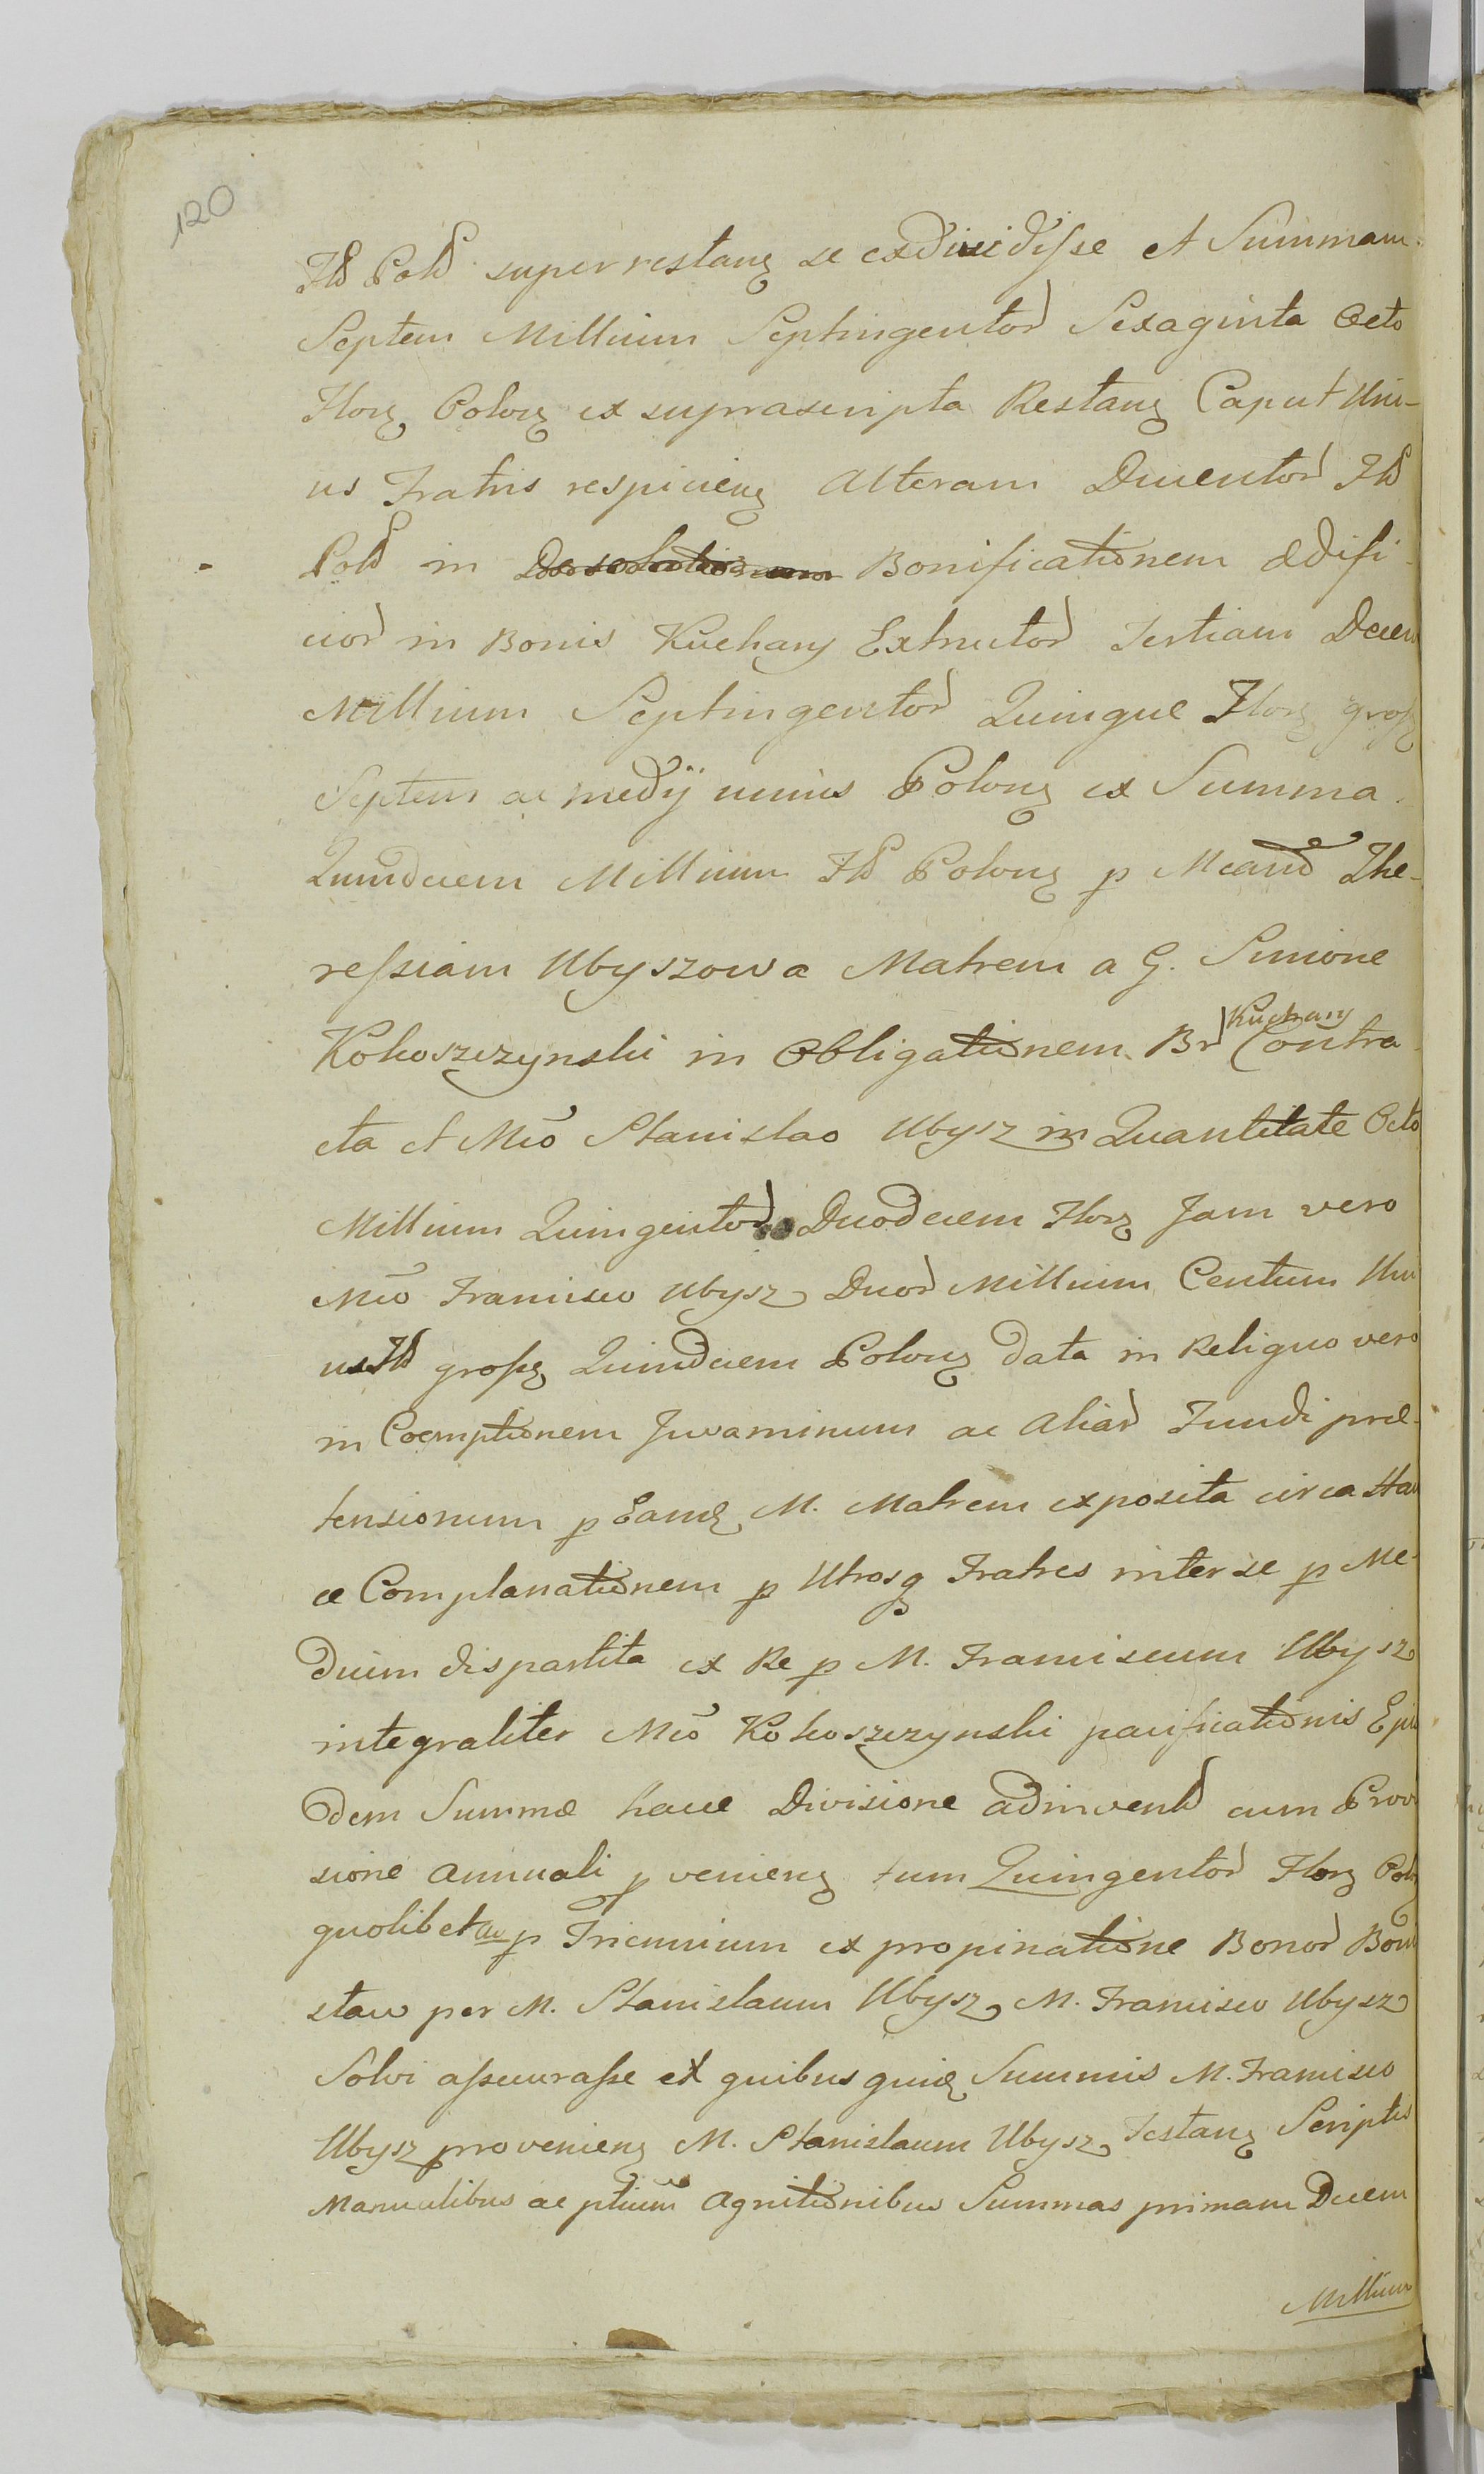 120
Fld Pold superrestanz se exdividisse et Summam
Septem Millium Septingentor Sexaginta Octo
Florz Polorz ex suprascripta Restanz Caput Uni-
us Fratris respicienz Alteram Ducentor Fld
Pold in Bonificationem ædifi-
cior in Bonis Kuchary Extructor Tertiam Decem
Millium Septingentor Quinque Florz grossz
Septem ac medij unius Polonz ex Summa
Quindecem Millium Fld Polonz p Mcand The-
ressiam Ubyszowa Matrem a G. Simone
Kokoszczynski in Obligationem Br Kuchary Contra
cta et Mco Stanislao Ubysz in Quantitate Octo
Millium Quingentor Duodecem Florz Jam vero
Mco Francisco Ubysz Duor Millium Centum Uni
us Fld grossz Quindecem Polonz data in Reliquo vero
in Coemptionem Juvaminum ac aliar Fundi præ-
tensionum p Eamd M. Matrem exposita circa Han
ce Complanationem p Utrosq Fratres inter se p Me-
dium dispartita ex Re p M. Franciscum Ubysz
integraliter Mco Kokoszczynski pacificationis Ejus
dem Summæ hacce Divisione adinventd cum Provi
sione annuali p venienz tum Quingentor Florz Polz
quolibet p Triennium ex propinatione Bonor Boni
slaw per M. Stanislaum Ubysz M. Francisco Ubysz
Solvi assecurasse ex quibus quid Summis M. Francisco
Ubysz provenienz M. Stanislaum Ubysz Testanz Scriptis
Manualibus ac ptium Agnitionibus Summas primam Decem
Millium